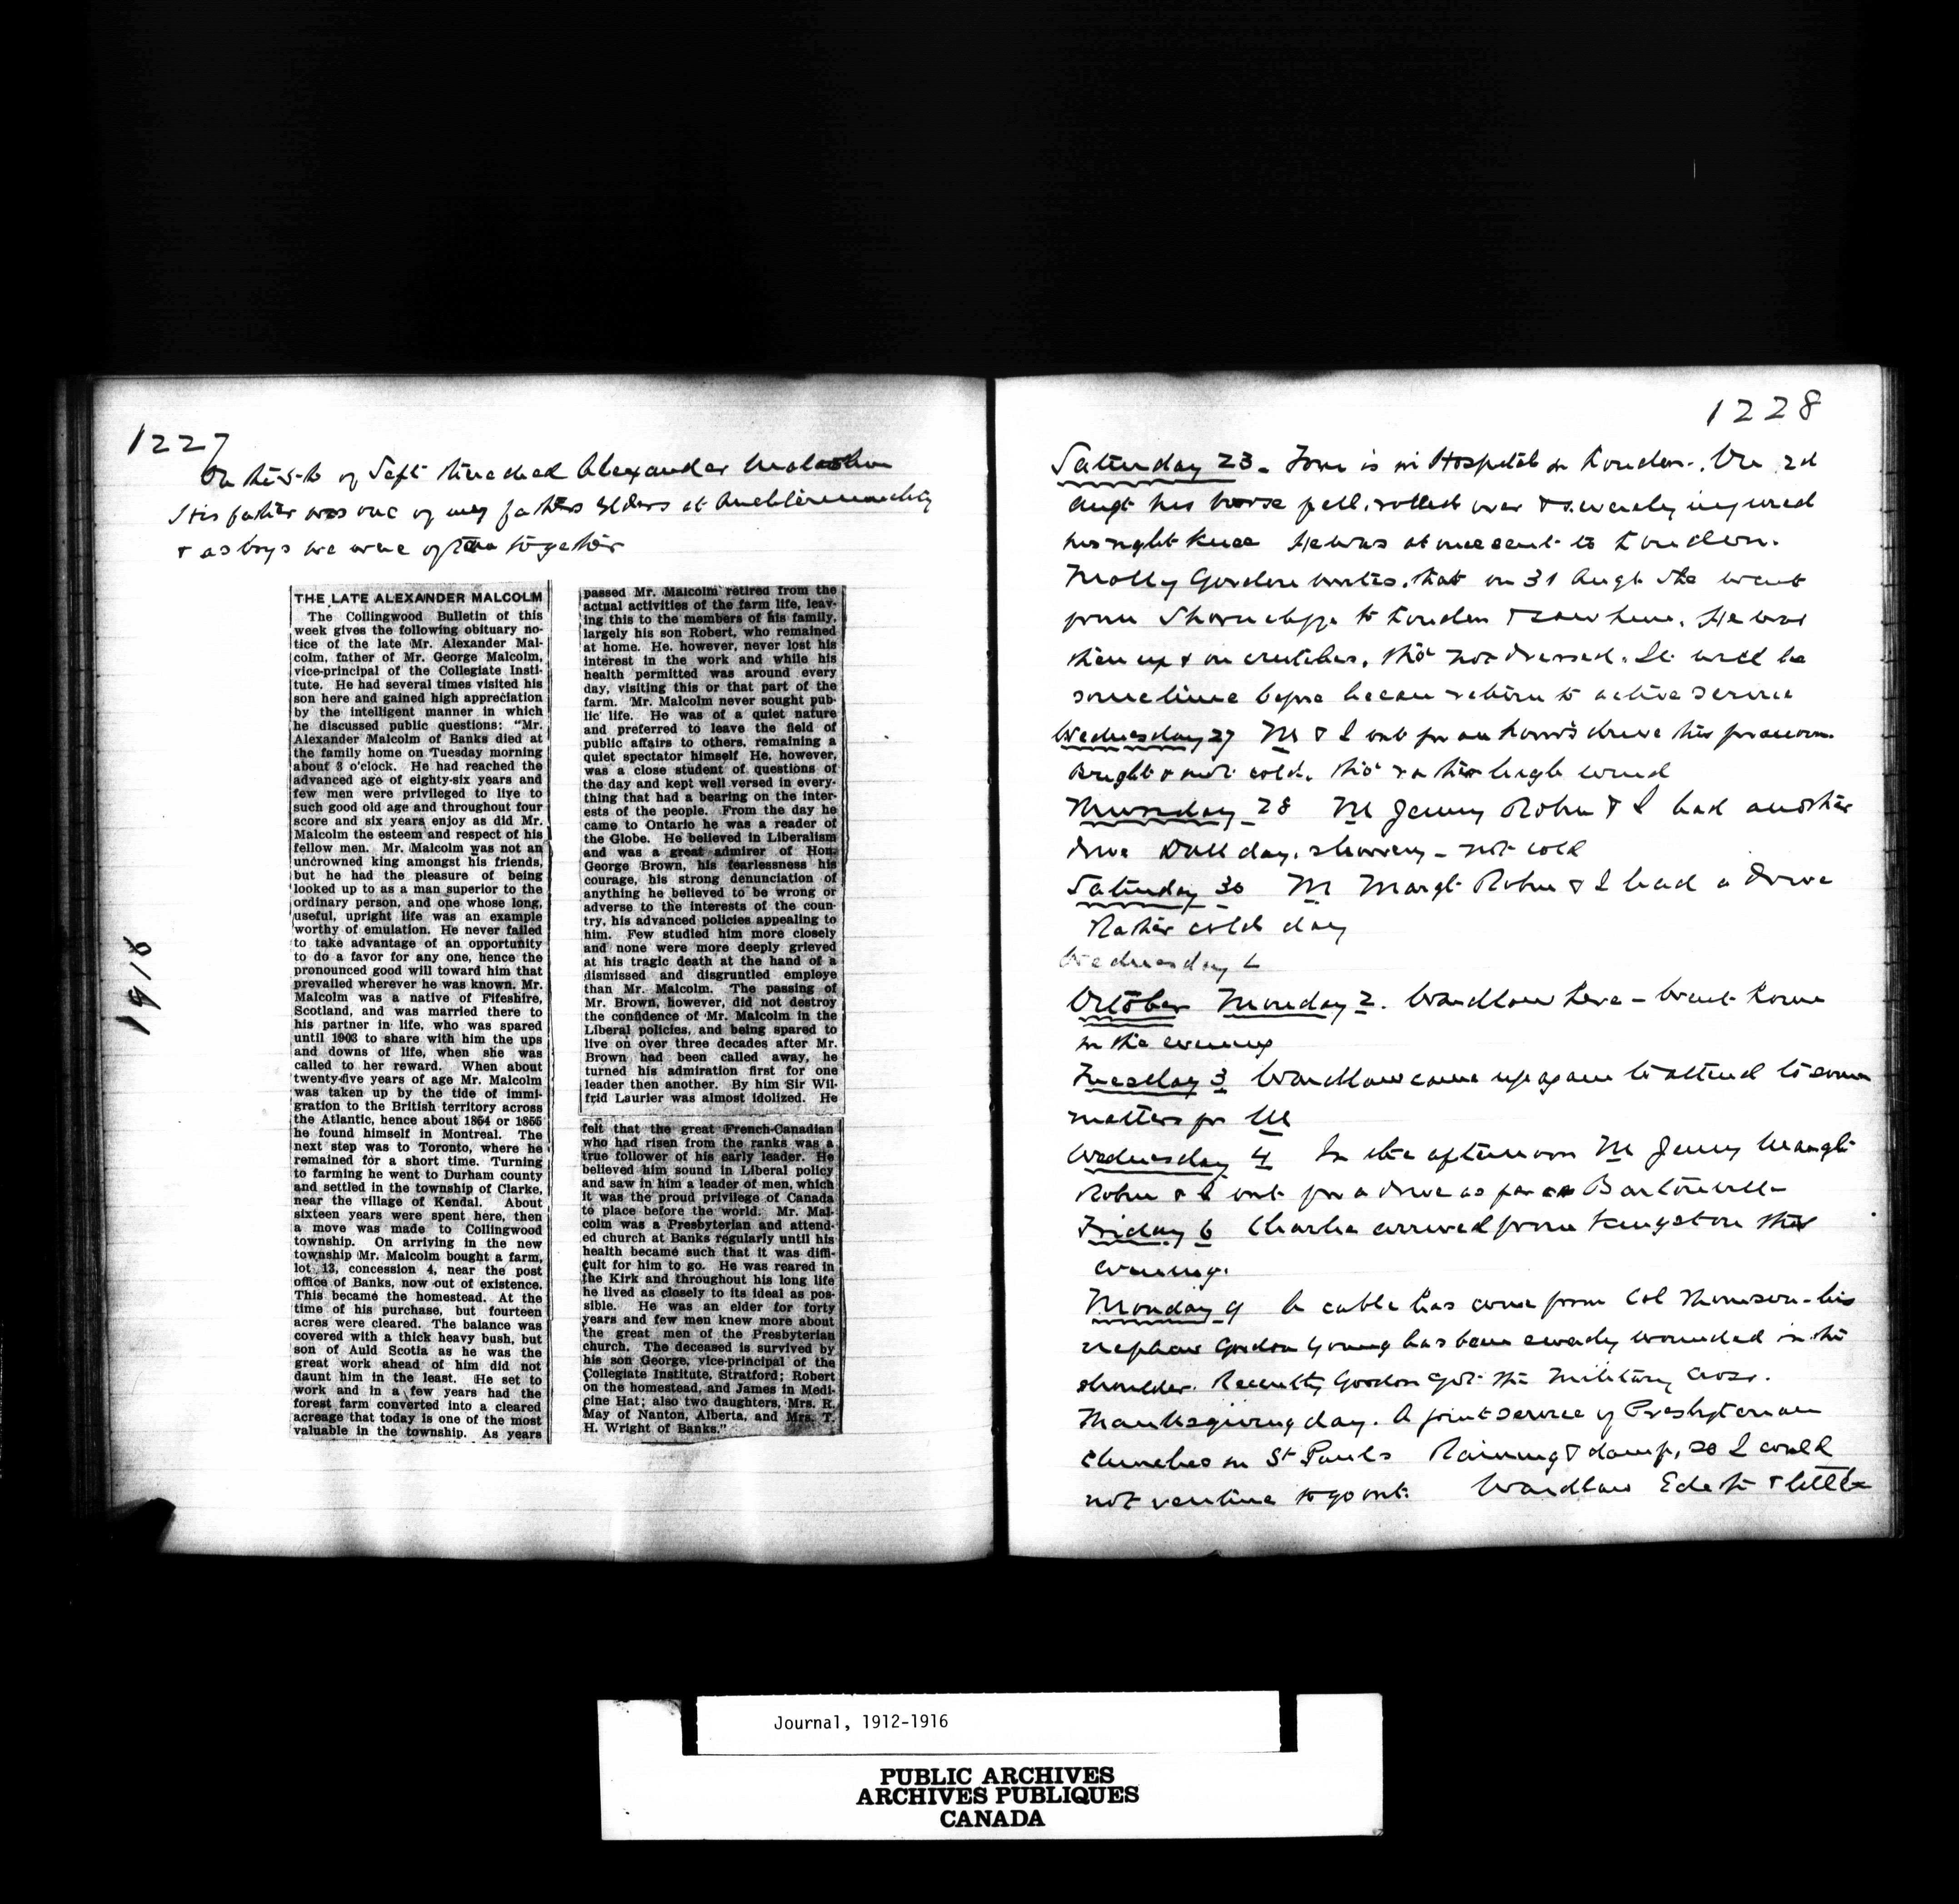 1227
On the 5th of Sept there died Alexander Malcolm
His father was one of my father's Elders at Auchtermuchty
& as boys we were often together
1916
THE LATE ALEXANDER MALCOLM
The Collingwood Bulletin of this
week gives the following obituary no-
tice of the late Mr. Alexander Mal-
colm, father of Mr. George Malcolm,
vice-principal of the Collegiate Insti-
tute. He had several times visited his
son here and gained high appreciation
by the intelligent manner in which
he discussed public questions: "Mr.
Alexander Malcolm of Banks died at
the family home on Tuesday morning
about 3 o'clock. He had reached the
advanced age of eighty-six years and
few men were privileged to live to
such good old age and throughout four
score and six years enjoy as did Mr.
Malcolm the esteem and respect of his
fellow men. Mr. Malcolm was not an
uncrowned king amongst his friends,
but he had the pleasure of being
looked up to as a man superior to the
ordinary person, and one whose long,
useful, upright life was an example
worthy of emulation. He never failed
to take advantage of an opportunity
to do a favor for any one, hence the
pronounced good will toward him that
prevailed wherever he was known. Mr.
Malcolm was a native of Fifeshire,
Scotland, and was married there to
his partner in life, who was spared
until 1903 to share with him the ups
and downs of life, when she was
called to her reward. When about
twenty-five years of age Mr. Malcolm
was taken up by the tide of immi-
gration to the British territory across
the Atlantic, hence about 1854 or 1855
he found himself in Montreal. The
next step was to Toronto, where he
remained for a short time. Turning
to farming he went to Durham county
and settled in the township of Clarke,
near the village of Kendal. About
sixteen years were spent here, then
a move was made to Collingwood
township. On arriving in the new
township Mr. Malcolm bought a farm,
lot 13, concession 4, near the post
office of Banks, now out of existence.
This became the homestead. At the
time of his purchase, but fourteen
acres were cleared. The balance was
covered with a thick heavy bush, but
son of Auld Scotia as he was the
great work ahead of him did not
daunt him in the least. He set to
work and in a few years had the
forest farm converted into a cleared
acreage that today is one of the most
valuable in the township. As years
passed Mr. Malcolm retired from the
actual activities of the farm life, leav-
ing this to the members of his family,
largely his son Robert, who remained
at home. He, however, never lost his
interest in the work and while his
health permitted was around every
day, visiting this or that part of the
farm. Mr. Malcolm never sought pub-
lic life. He was of a quiet nature
and preferred to leave the field of
public affairs to others, remaining a
quiet spectator himself He, however,
was a close student of questions of
the day and kept well versed in every-
thing that had a bearing on the inter-
ests of the people. From the day he
came to Ontario he was a reader of
the Globe. He believed in Liberalism
and was a great admirer of Hon.
George Brown, his fearlessness his
courage, his strong denunciation of
anything he believed to be wrong or
adverse to the interests of the coun-
try, his advanced policies appealing to
him. Few studied him more closely
and none were more deeply grieved
at his tragic death at the hand of a
dismissed and disgruntled employe
than Mr. Malcolm. The passing of
Mr. Brown, however, did not destroy
the confidence of Mr. Malcolm in the
Liberal policies, and being spared to
live on over three decades after Mr.
Brown had been called away, he
turned his admiration first for one
leader then another. By him Sir Wil-
frid Laurier was almost idolized. He
felt that the great French-Canadian
who had risen from the ranks was a
true follower of his early leader. He
believed him sound in Liberal policy
and saw in him a leader of men, which
it was the proud privilege of Canada
to place before the world. Mr. Mal-
colm was a Presbyterian and attend-
ed church at Banks regularly until his
health became such that it was diffi-
cult for him to go. He was reared in
the Kirk and throughout his long life
he lived as closely to its ideal as pos-
sible. He was an elder for forty
years and few men knew more about
the great men of the Presbyterian
church. The deceased is survived by
his son George, vice-principal of the
Collegiate Institute, Stratford; Robert
on the homestead, and James in Medi-
cine Hat; also two daughters, Mrs. R.
May of Nanton, Alberta, and Mrs. T.
H. Wright of Banks."
1228
Saturday 23. is in Hospital in London. On 2d
Augt his horse fell, rolled over & severely injured
his right knee He was at once sent to London.
Molly Gordon writes, that on 31 Augt she went
from Shorncliffe to London & saw him. He was
then up & on crutches, tho' not dressed. It will be
sometime before he can return to active service
Wednesday 27 M & I out for an hour's drive this forenoon.
Bright & not cold. tho' rather high wind
Thursday 28 M Jenny Robin & I had another
drive Dull day. showery - not cold
Saturday 30 M Margt Robin & I had a drive
Rather cold day
Wednesday
October Monday 2. Wardlaw here - Went home
in the evening
Tuesday 3 Wardlaw came up again to attend to some
matters for M
Wednesday 4 In the afternoon M Jenny Margt
Robin & I out for a drive as far as Bartonville
Friday 6 Charlie arrived from Kingston this
evening.
Monday 9 A cable has come from Col Thomson - his
nephew Gordon Young has been severely wounded in the
shoulder. Recently Gordon got the Military Cross.
Thanksgiving day. A joint service of Presbyterian
churches in St Pauls Raining & damp, so I could
not venture to go out. Wardlaw Edith & little
Journal, 1912-1916
PUBLIC ARCHIVES
ARCHIVES PUBLIQUES
CANADA